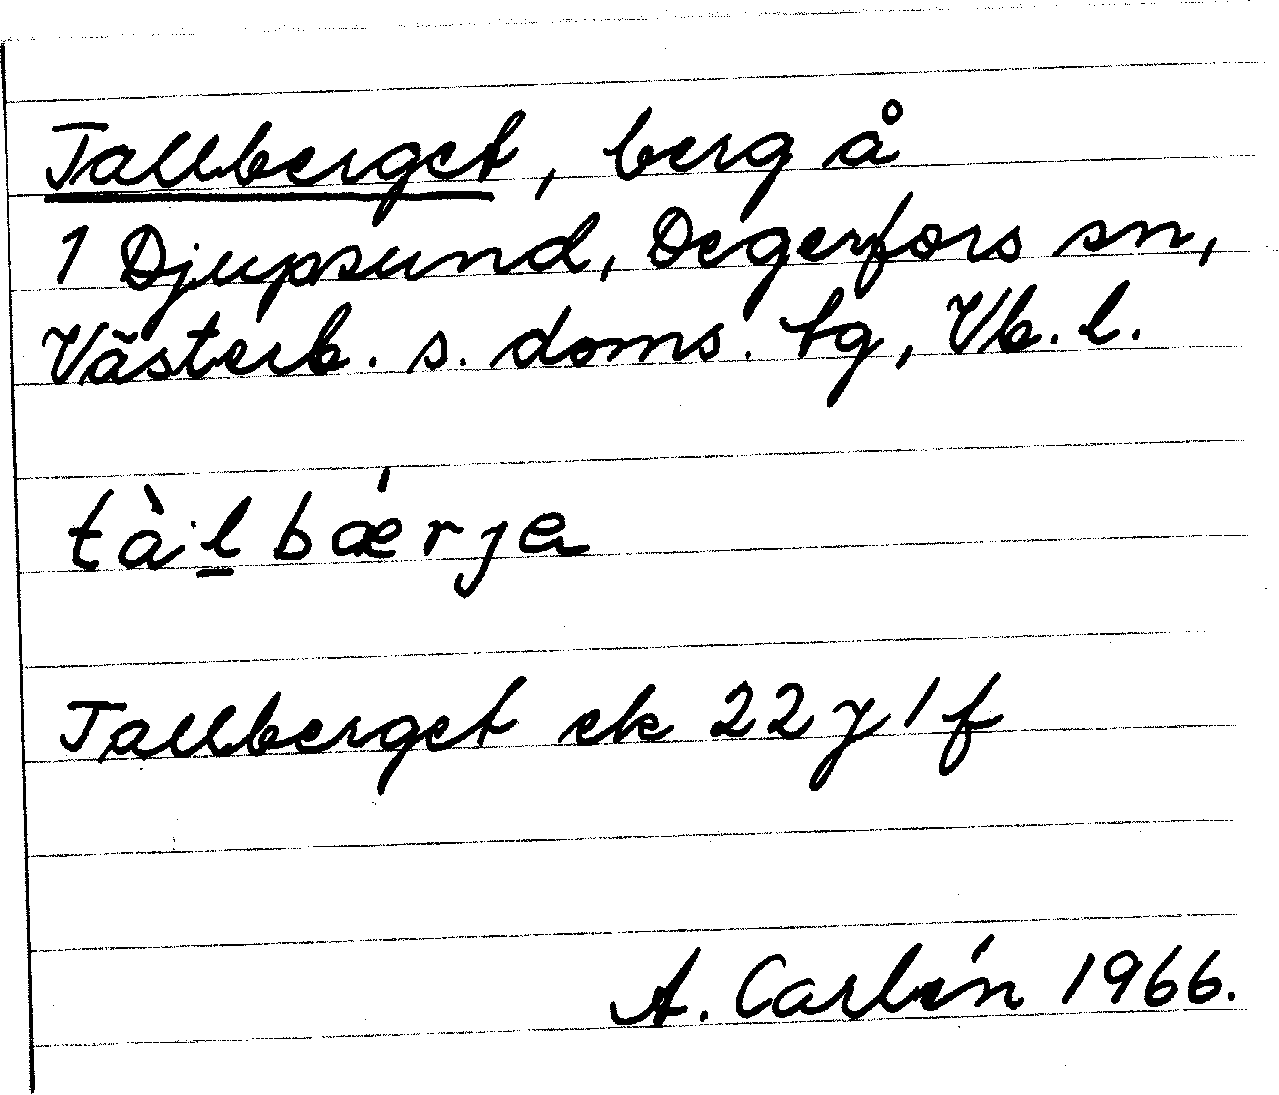 Tallberget, berg å
1 Djupsund, Degerfors sn,
Västerb. s. doms. tg, Vb. l.
tàl̠bǽrja
Tallberget ek 22 y 1 f
A. Carlén 1966.